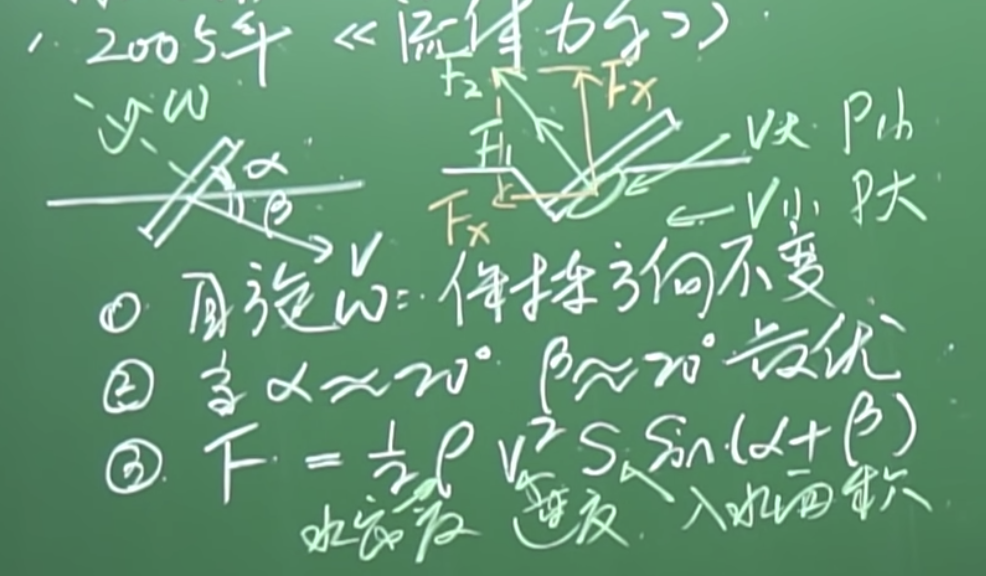 1. 2005年 《流体力学》
ω
α
β
V
F₂
F₁
Fx
Fx
V大 P小
V小 P大
① 自旋ω: 保持方向不变
② 当α≈20° β≈20° 最优
③ F = ½ρV²S sin(α+β)
水密度 速度 入水面积